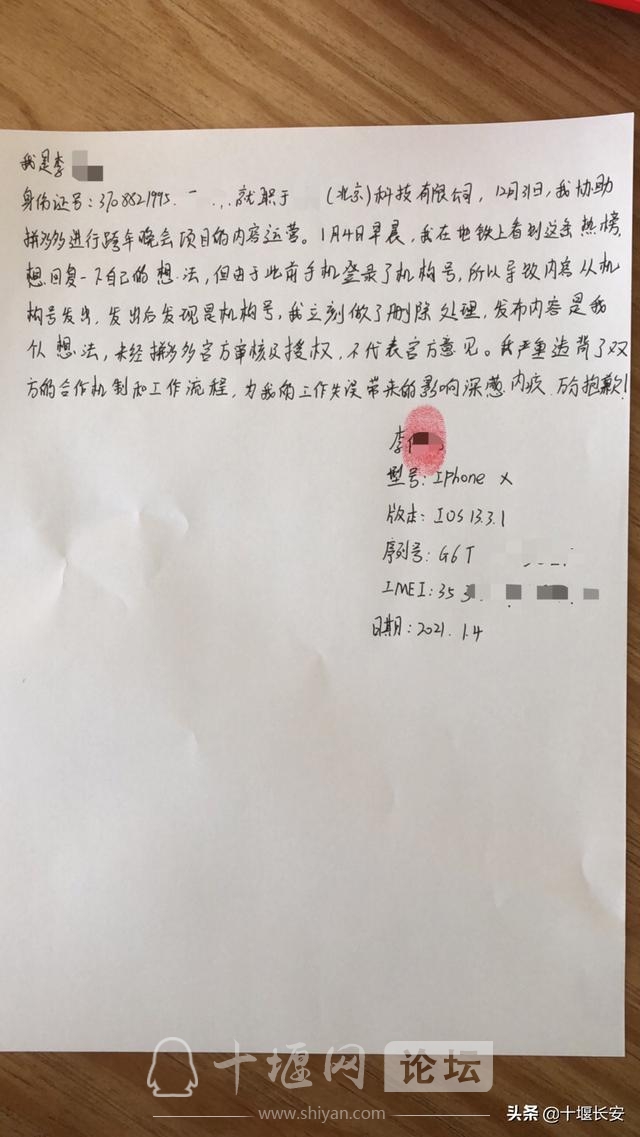 我是李
身份证号：3708821995. 就职于 （北京）科技有限公司，12月31日，我协助
拼多多进行跨年晚会项目的内容运营。1月4日早晨，我在地铁上看到这条热榜，
想回复一下自己的想法，但由于此前手机登录了机构号，所以导致内容从机
构号发出，发出后发现是机构号，我立刻做了删除处理，发布内容是我
个人想法，未经拼多多官方审核及授权，不代表官方意见。我严重违背了双
方的合作机制和工作流程，为我的工作失误带来的影响深感内疚 万分抱歉！
李
型号：IPhone X
版本：IOS 13.3.1
序列号：G6T
IMEI：35
日期：2021.1.4
十堰网 论坛
www.shiyan.com
头条 @十堰长安